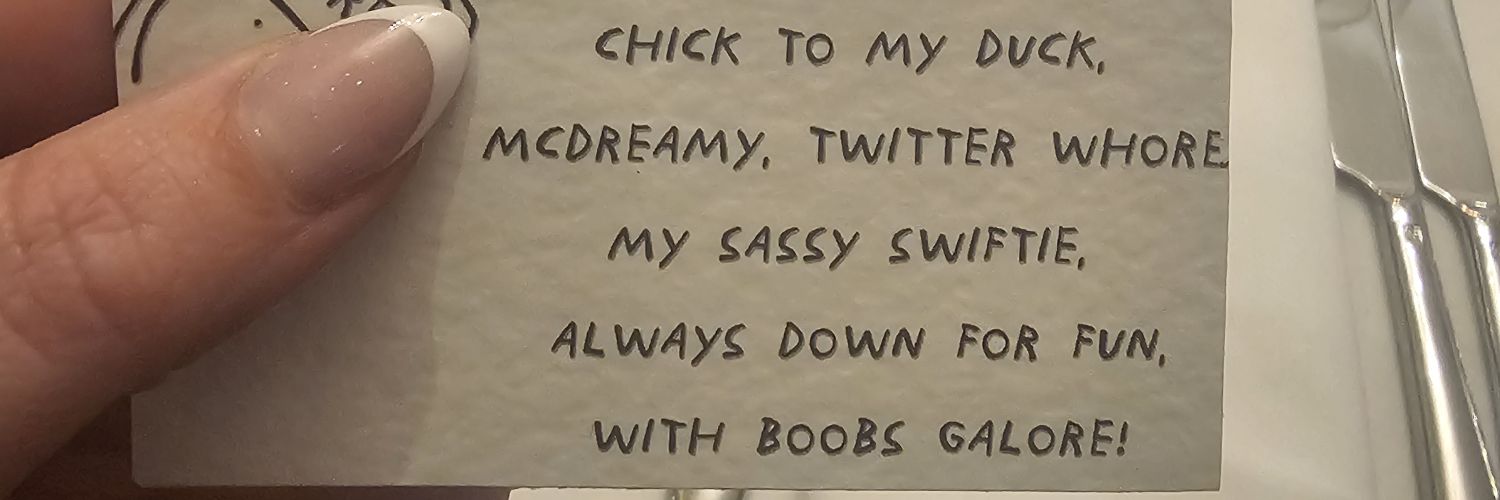 CHICK TO MY DUCK,
MCDREAMY, TWITTER WHORE,
MY SASSY SWIFTIE,
ALWAYS DOWN FOR FUN,
WITH BOOBS GALORE!